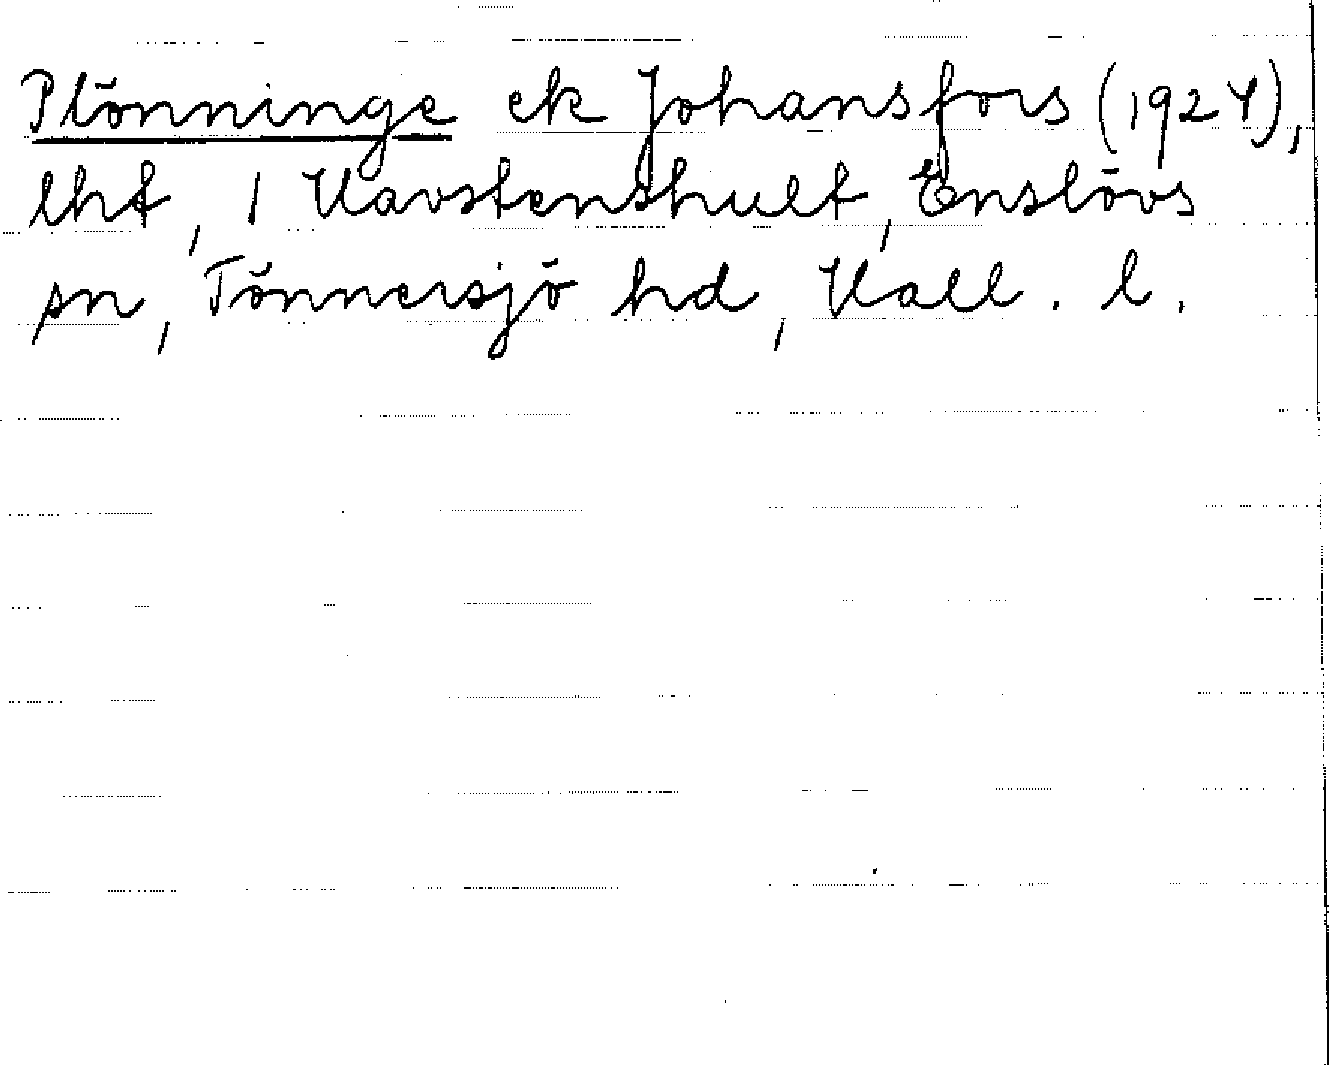 Plönninge ek Johansfors (1924),
lht, 1 Havstenshult, Enslövs
sn, Tönnersjö hd, Hall. l.